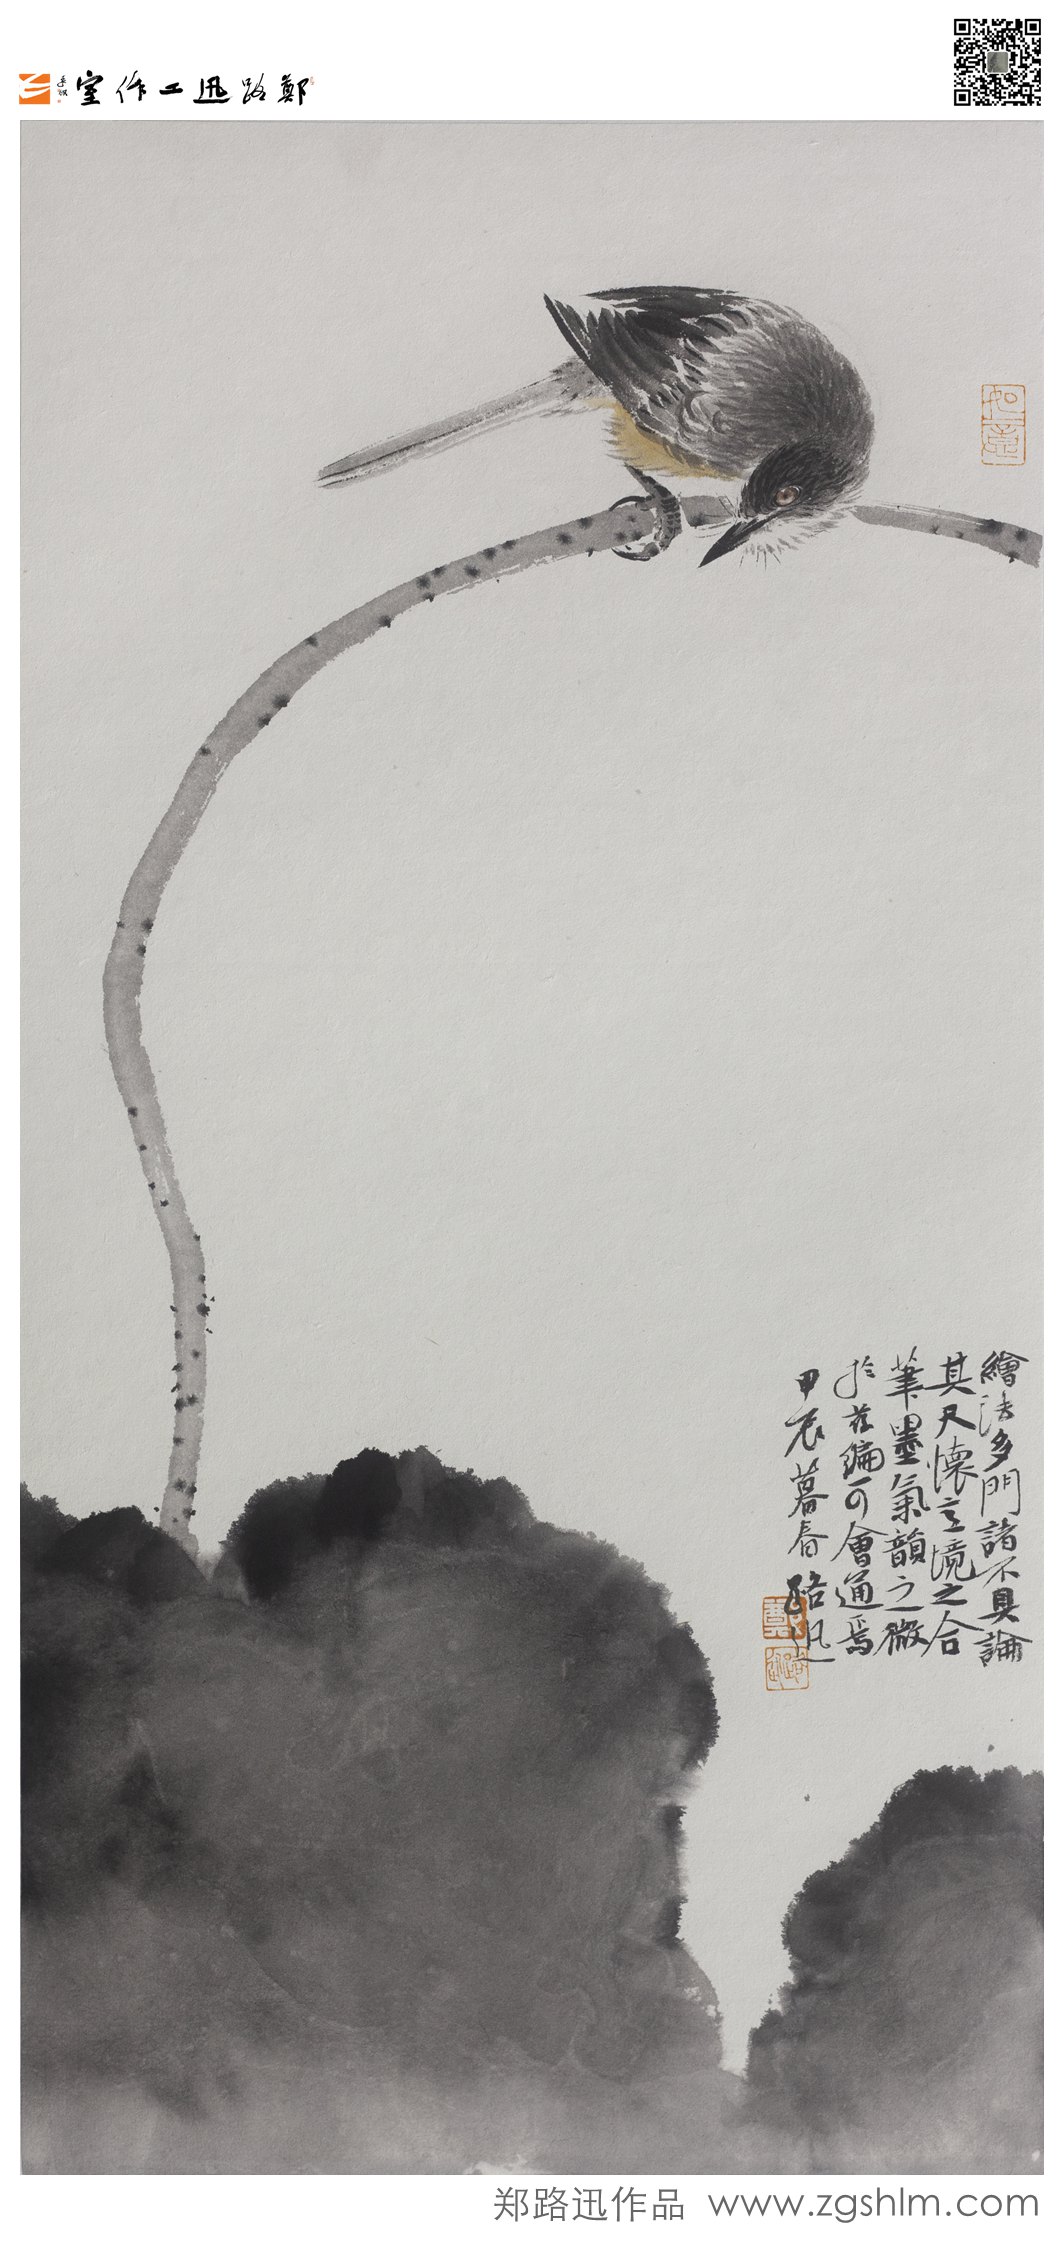 鄭路迅工作室
如意
繪法多門諸不具論
其尺懷立境之合
筆墨氣韻之微
於茲編可會通焉
甲辰暮春路迅
郑路迅作品 www.zgshlm.com